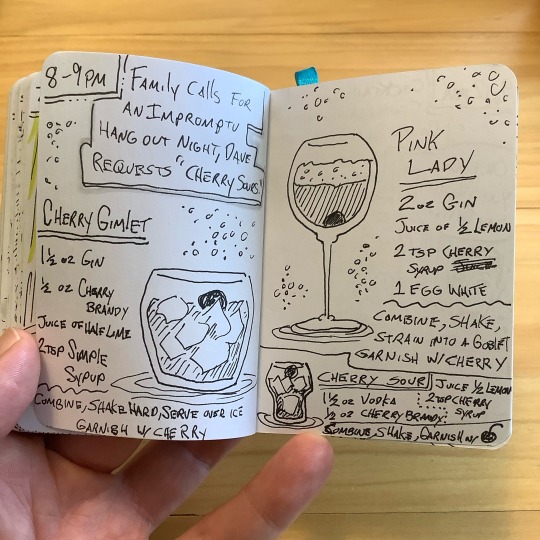 8-9PM
FAMILY CALLS FOR
AN IMPROMPTU
HANG OUT NIGHT, DAVE
REQUESTS "CHERRY SOURS"
CHERRY GIMLET
1½ oz GIN
½ oz CHERRY
BRANDY
JUICE OF HALF LIME
2 TSP SIMPLE
SYRUP
COMBINE, SHAKE HARD, SERVE OVER ICE
GARNISH W/ CHERRY
PINK
LADY
2 oz GIN
JUICE OF ½ LEMON
2 TSP CHERRY
SYRUP
1 EGG WHITE
COMBINE, SHAKE,
STRAIN INTO A GOBLET
GARNISH W/ CHERRY
CHERRY SOUR
1½ oz VODKA
½ oz CHERRY BRANDY
JUICE ½ LEMON
2 TSP CHERRY
SYRUP
COMBINE, SHAKE, GARNISH W/